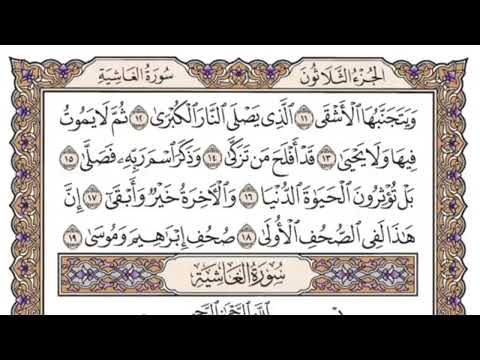 الجزء الثلاثون
سورة الغاشية
وَيَتَجَنَّبُهَا ٱلْأَشْقَى ١١ ٱلَّذِى يَصْلَى ٱلنَّارَ ٱلْكُبْرَىٰ ١٢ ثُمَّ لَا يَمُوتُ
فِيهَا وَلَا يَحْيَىٰ ١٣ قَدْ أَفْلَحَ مَن تَزَكَّىٰ ١٤ وَذَكَرَ ٱسْمَ رَبِّهِۦ فَصَلَّىٰ ١٥
بَلْ تُؤْثِرُونَ ٱلْحَيَوٰةَ ٱلدُّنْيَا ١٦ وَٱلْءَاخِرَةُ خَيْرٌ وَأَبْقَىٰٓ ١٧ إِنَّ
هَٰذَا لَفِى ٱلصُّحُفِ ٱلْأُولَىٰ ١٨ صُحُفِ إِبْرَٰهِيمَ وَمُوسَىٰ ١٩
سُورَةُ الْغَاشِيَةِ